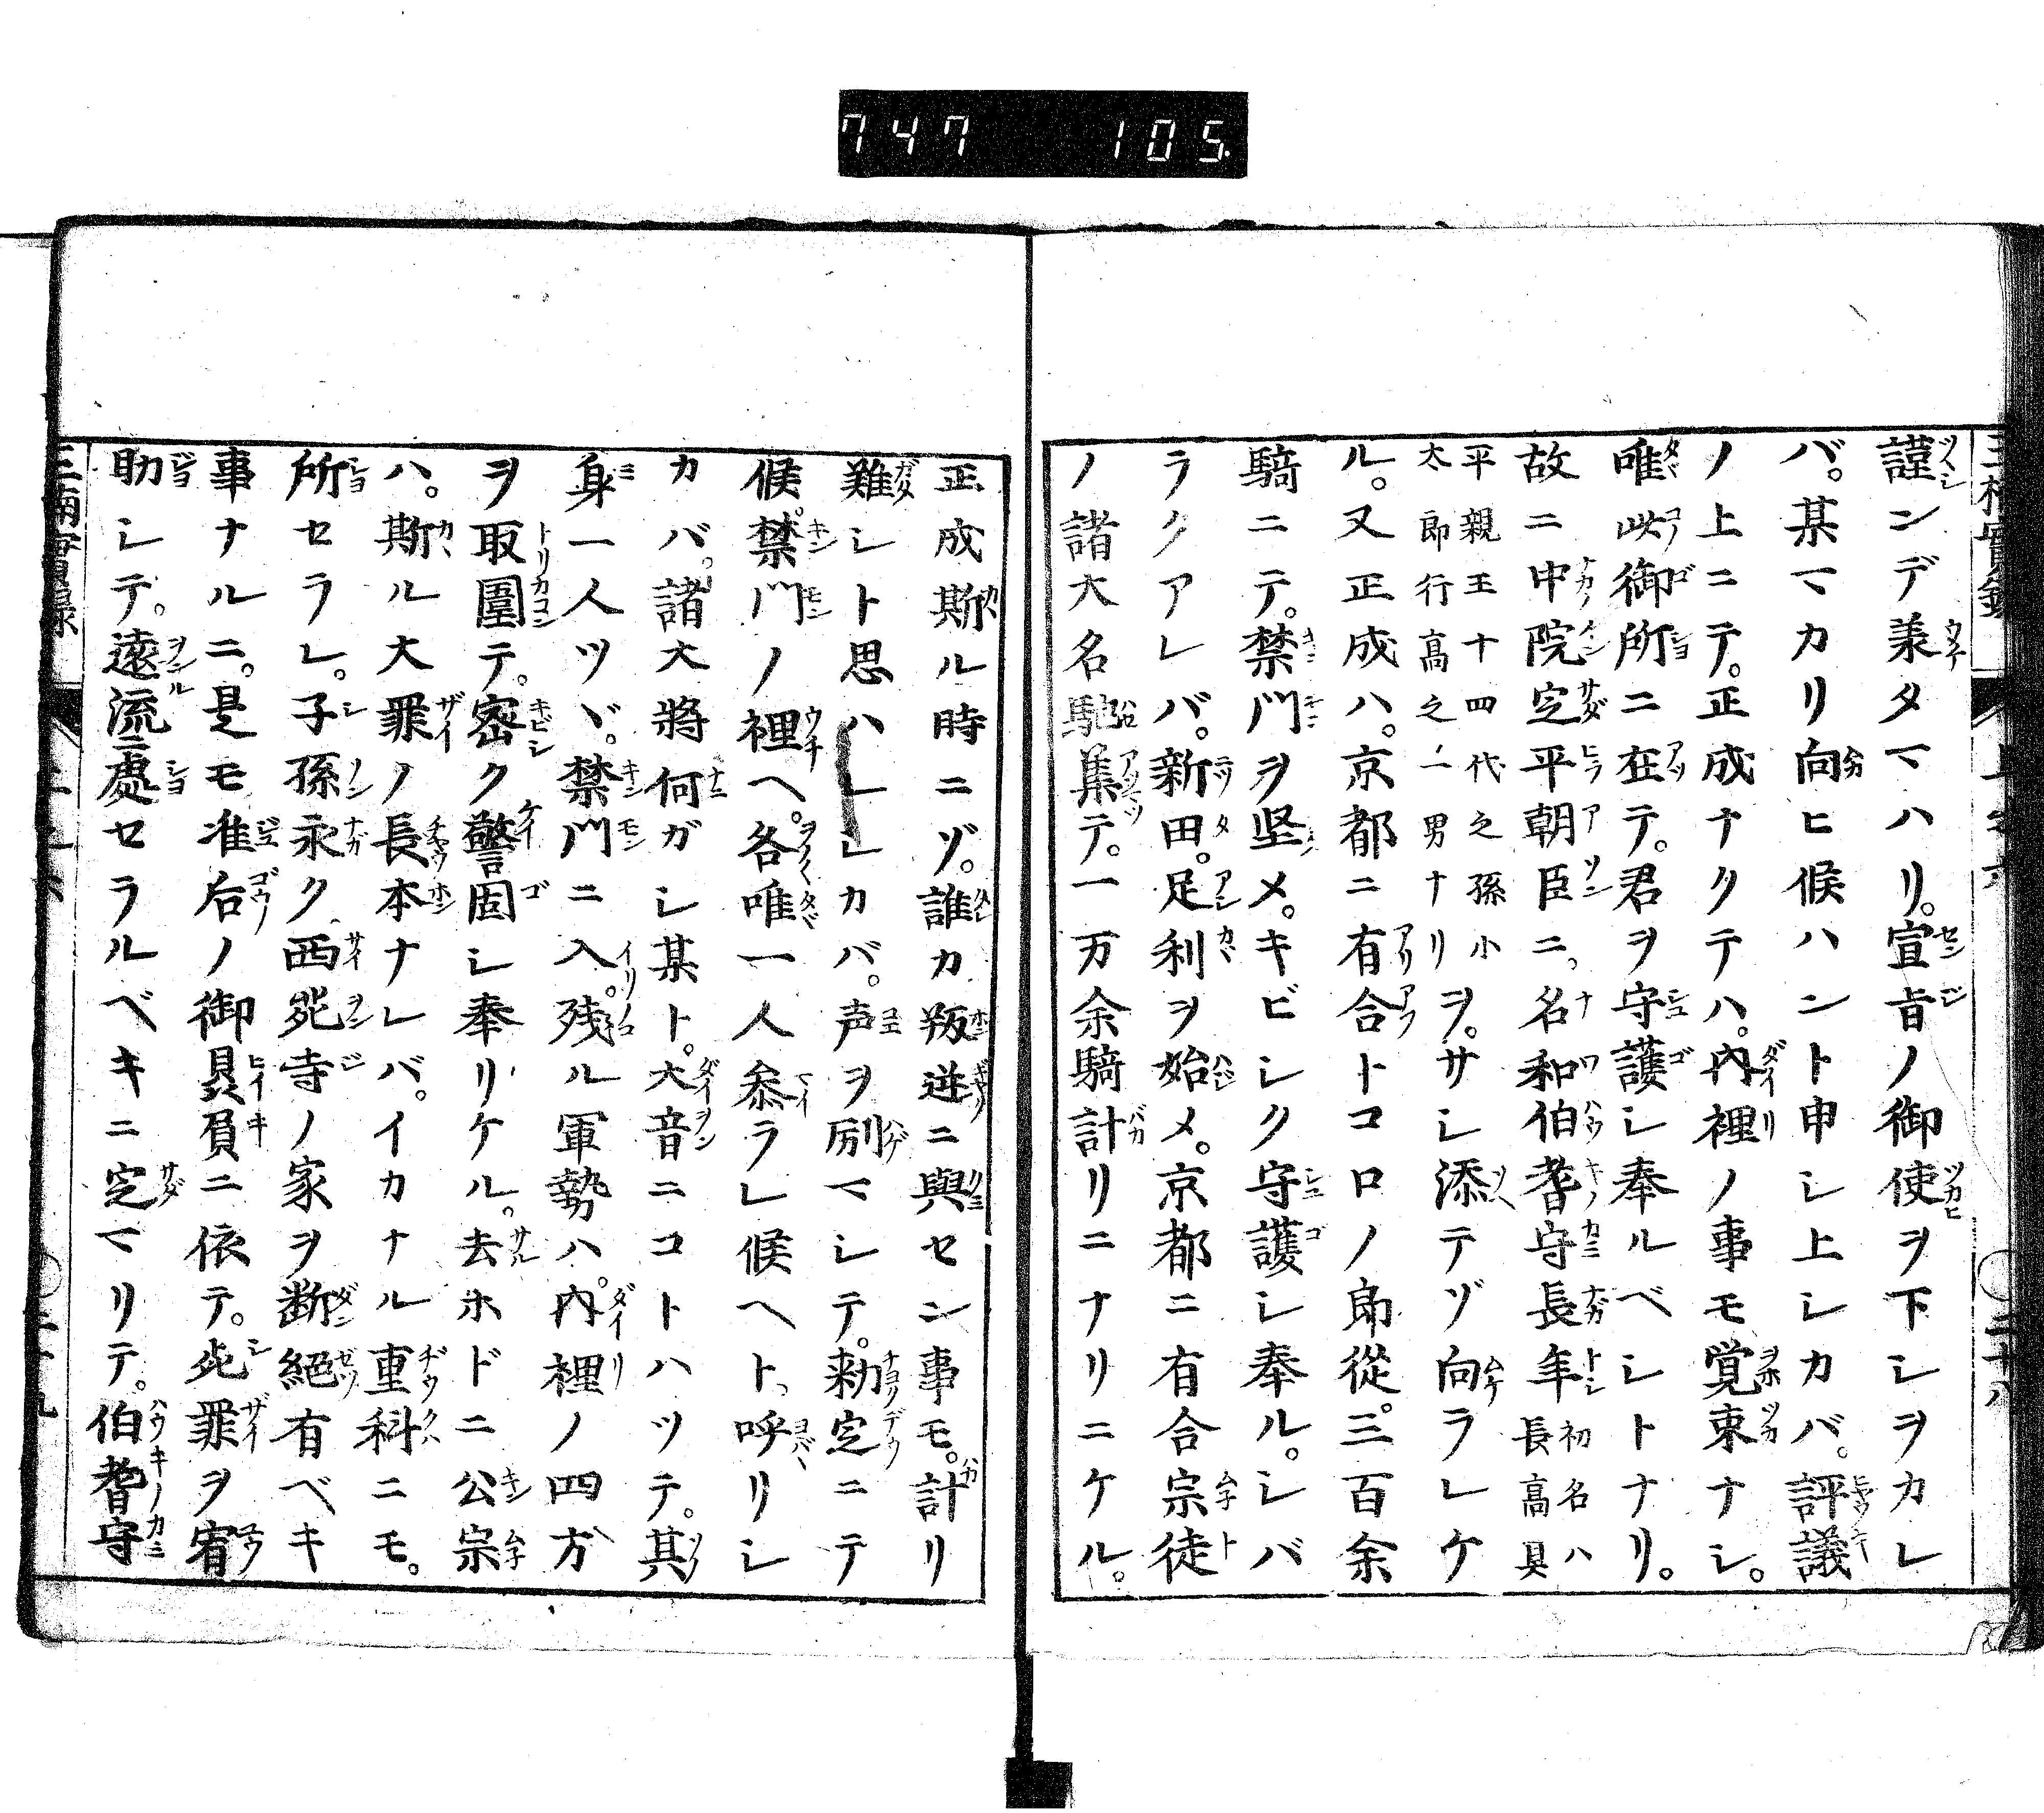 747 105.
謹ンデ義タマハリ。宣旨ノ御使ヲ下シヲカレ
バ。某マカリ向ヒ候ハント申シ上シカバ。評議
ノ上ニテ。正成ナクテハ。内裡ノ事モ覚束ナシ。
唯此御所ニ在テ。君ヲ守護シ奉ルベシトナリ。
故ニ中院定平朝臣ニ。名和伯耆守長年初名ハ長高具
平親王十四代之孫小太郎行高之一男ナリヲ。サシ添テゾ向ラレケ
ル。又正成ハ。京都ニ有合トコロノ郎從。三百余
騎ニテ。禁門ヲ堅メ。キビシク守護シ奉ル。シバ
ラクアレバ。新田。足利ヲ始メ。京都ニ有合宗徒
ノ諸大名馳集テ。一万余騎計リニナリニケル。
二十八
正成斯ル時ニゾ。誰カ叛逆ニ與セン事モ。計リ
難シト思ハレシカバ。声ヲ励マシテ。勅定ニテ
候。禁門ノ裡ヘ。各唯一人參ラレ候ヘト。呼リシ
カバ。諸大將何ガシ某ト。大音ニコトハツテ。其
身一人ツヾ。禁門ニ入。残ル軍勢ハ。内裡ノ四方
ヲ取圍テ。密ク警固シ奉リケル。去ホドニ公宗
ハ。斯ル大罪ノ長本ナレバ。イカナル重科ニモ。
所セラレ。子孫永ク西苑寺ノ家ヲ断絕有ベキ
事ナルニ。是モ准后ノ御贔屓ニ依テ。死罪ヲ宥
助シテ。遠流ニ處セラルベキニ定マリテ。伯耆守